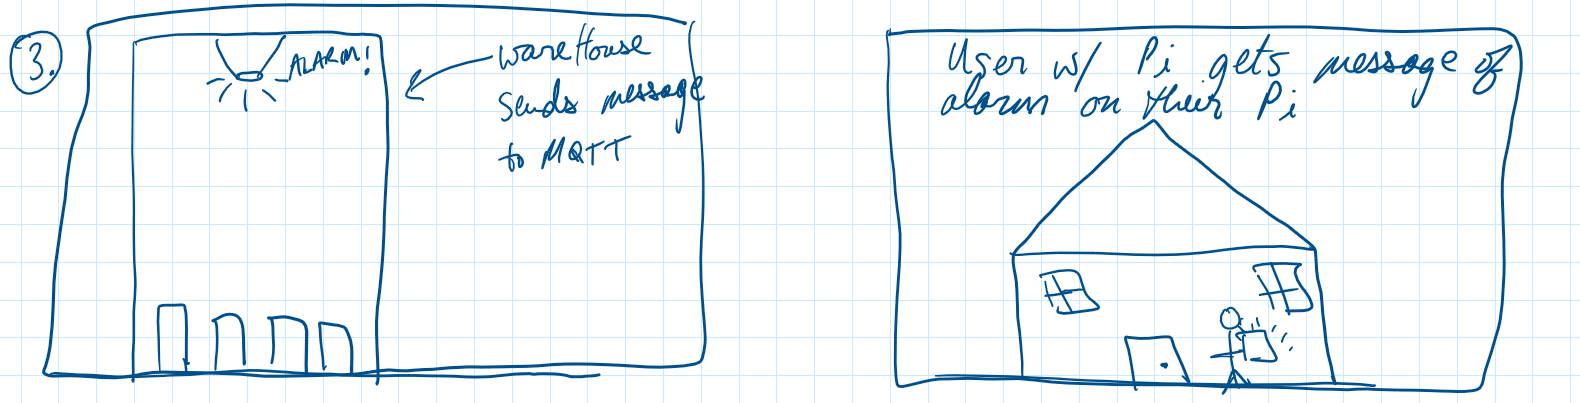 3.
ALARM!
wareHouse
sends message
to MQTT
User w/ Pi gets message of
alarm on their Pi